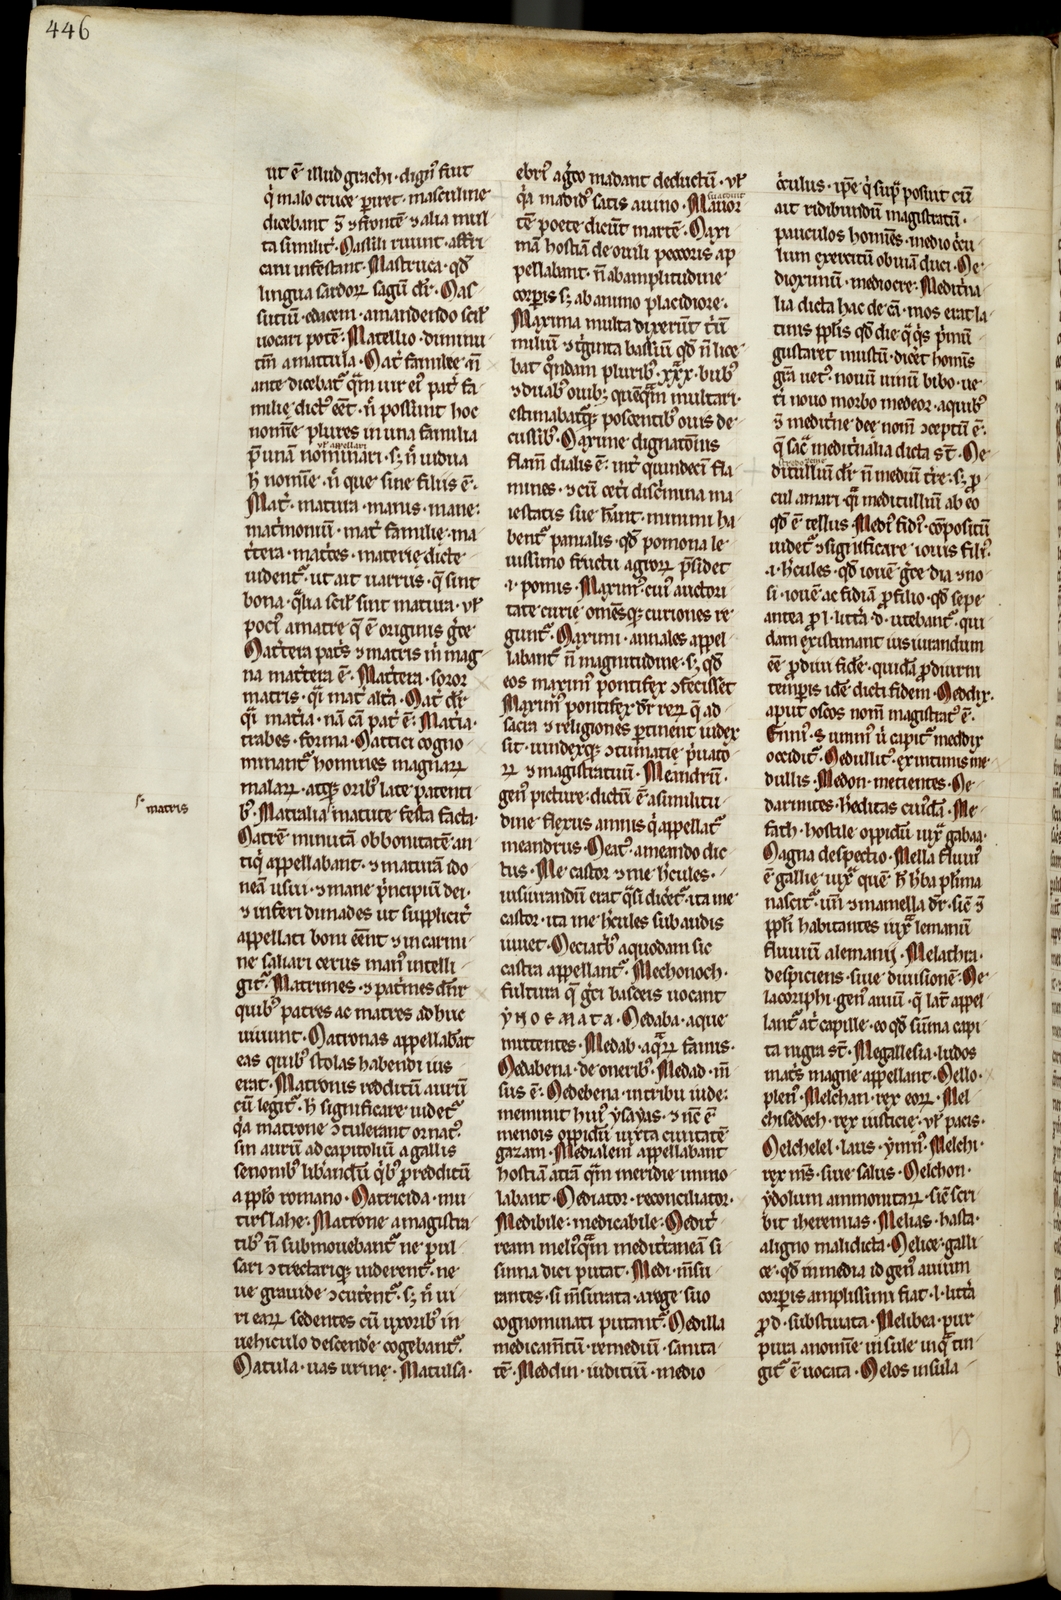 446
ut ē illud grachi· dign᷒ fuit
q̇ malo cruce ꝑiret· masculine
dicebant s̄ ⁊ frontē ⁊ alia mul
ta similit᷑· Massili riuunt· affri
cam infestant· Mastruca· qđ
lingua sardoꝝ sagū dr̄· Mas
sutiū· edacem· a mandendo scil᷒
uocari potē· Matellio· diminu
tiū a matula· Mat᷑ familie· n̄
ante dicebat᷑ q̄m uir ei᷒ pat᷑ fa
milie dict᷒ eēt· n̄ possunt hoc
nomine plures in una familia
ꝑ unā nominari· s; n̄ uidua
ł appellari
h̄ nomīe· n̄ que sine filiis ē·
Mat᷑· matura· manus· mane·
mat᷑monium· mat᷑ familie· ma
t᷑tera· mat᷑tes· materie dicte
uident᷑· ut ait uarrus· q̄ sint
bona· q̄lia scil᷒ sint matura· ul᷒
poci᷒ a matre q̄ ē originis grēce
Mat᷑tera pat᷑s ⁊ matris in mag
na mat᷑tera ē· Mat᷑tera· soror
matris· q̄i mat᷑ alt᷑a· Mat᷑ dr̄
q̄i mat᷑ia· nā cā pat᷑ ē· Mat᷑ia·
trabes· forma· Mattici cogno
minant᷑ homines magnaꝝ
malaꝝ· atq; orib᷒ late patenti
s· matris
b᷒· Matralia matute festa facta·
Matrē minutā ob bonitatē an
tiq̇ appellabant· ⁊ maturā ido
neā usui· ⁊ mane p̄ncipiū dei·
⁊ inferi dii manes ut supplicit᷑
appellati boni eēnt ⁊ in carmi
ne saliari cerus man᷒ intelli
git᷑· Matrimes· ⁊ patrimes dn̄r
quib᷒ patres ac matres adhuc
uiuunt· Matronas appellabāt
eas quib᷒ stolas habendi ius
erat· Matronis redditū aurū
cū legit᷑· h̄ significare uidet᷑
q̇a matrone ɔtulerant ornat᷒
sin aurū ad capitoliū a gallis
senonib᷒ liberandū q̇b᷒ ꝓ redditū
a pplo romano· Matricida· mu
tirslahe· Matrone a magistra
tib᷒ n̄ submouebant᷑ ne pul
sari ɔtrectariq; uiderent᷑· ne
ue grauide ɔcuterent᷑· s; n̄ ui
ri eaꝝ sedentes cū uxorib᷒ in
uehiculo descende cogebant᷑·
Matula· uas urine· Matulla·
ebri᷒ a grēco madant deductū· ul᷒
q̇a madid᷒ satis a uino· Mauor
tē poete dicūt martē· Maxi
mā hostiā de ouili pecoris ap
pellabant· n̄ ab amplitudine
corꝑis s; ab animo placidiore·
Maxima multa dixerūt triū
miliū ⁊ t᷑ginta bassiū qđ n̄ lice
bat q̄ndam plurib᷒ ·xxx· bub᷒
⁊ duab᷒ ouib; quēq̄m multari·
estimabatq; poscentib᷒ ouis de
cussib᷒· Maxime dignatōnis
flam̄ dialis ē· int᷑ quindecī fla
mines· ⁊ cū cet᷑i disc᷑imina ma
iestatis sue hn̄ant· minimi ha
bent᷑ pamalis· qđ pomona le
uissimo fructu agroꝝ p̄sidet
·i· pomis· Maxim᷒· cui᷒ auctori
tate curie omēsq; curiones re
gunt᷑· Maximi· annales appel
labant᷑ n̄ magnitudine· s; qđ
eos maxim᷒ pontifex ɔfecisset
Maxim᷒ pontifex dr̄ reꝝ q̄ ad
sacra ⁊ religiones ꝑtinent iudex
sit· uindexq; ɔtumatie p̄uato
ꝝ ⁊ magistratuū· Meandrū·
gen᷒ picture· dictū ē a similitu
dine flexus amnis q̇ appellat᷑
meandrus· Meat᷒· a meando dic
tus· Me castor ⁊ me hercules·
iusiurandū erat q̄si diceret᷑· ita me
castor· ita me hercules sub audis
iuuet· Meciatb᷒ a quodam sic
castra appellant᷑· Mechonoch·
fultura q̄ greci basceis uocant
ynosmata· Medaba· aque
mittentes· Medab· aq̄ꝝ famis·
Medabena· de onerib᷒· Medad· m̄
sus ē· Medebena· in tribu iude·
meminit hui᷒ ysayas· ⁊ n̄c ē
menois oppidū iuxta ciuitatē
gazam· Medialem appellabant
hostiā atrā q̄m meridie immo
labant· Mediator· reconciliator·
Medibile· medicabile· Medit᷑
ream meli᷒q̄m medit᷑raneā si
sinna dici putat· Medi· m̄su
rantes· si m̄surata· a rege suo
cognominati putant᷑· Medilla
medicam̄tū· remediū· sanita
tē· Medclun· iuditiū· medio
oculus· ip̄e q̇ supͣ posuit cū
ait ridibundū magistratū·
pauculos homīes· medio ocu
lum exercitū obuiā duci· Me
dioximū· mediocre· Medit᷑na
lia dicta hac de cā· mos erat la
tinis pplis qđ die q̄ q̇s p̄mū
gustaret mustū· dicet᷑ hom̄s
grā uet᷒· nouū uinū bibo· ue
ti nouo morbo medeor· a quib᷒
⁊ medit᷑ne dee nom̄ ɔceptū ē·
q̄ sac᷑ medit᷑nalia dicta sr̄· Me
ditulliū dr̄ n̄ mediū t᷑re· s; ꝓ
cul a mari· q̄i meditulliū ab eo
qđ ē tellus· Medi᷒ fidi᷒· cōpositū
uidet᷑ ⁊ significare iouis fili᷒·
·i· hercules· qđ iouē grēce dia ⁊ no
si· iouē ac fidiā ꝓ filio· qđ sepe
antea ꝓ ·l· litt᷑a ·d· utebant᷑· qui
dam existimant iusiurandum
eē ꝓ diui fide· quidā ꝓ diurni
temꝑis idē dicti fidem· Meddix·
aput oscos nom̄ magistrat᷒ ē·
Enni᷒· ⁊ unni᷒ ū capit᷑ meddix
occidit᷑· Medullit᷒· ex intimis me
dullis· Medon· metientes· Me
darinites· hereditas cui᷒dā· Me
fath· hostile oppidū iuxͣ gabaa·
Magna despectio· Mella fluui᷒
ē gallie iuxͣ quē h̄ herba plima
nascit᷑· un̄ ⁊ mamella dr̄· sic̄ ⁊
ppli habitantes iuxͣ lemanū
fluuiū alemanij· Melachia·
despiciens· siue diuisionē· Me
lacoriphi· gen᷒ auiū· q̄ lat᷑ appel
lant᷑ at᷑ capille· eo qđ sūma capi
ta nigra sr̄· Megallesia· ludos
mat᷑s magne appellant· Mello·
plen᷒· Melcham· rex eoꝝ· Mel
chisedech· rex iusticie· ul᷒ pacis·
Melchelel· laus· ymn᷒· Melchi·
rex m̄s· siue salus· Melchon·
ydolum ammonitaꝝ· sic̄ scri
bit iheremias· Melias· hasta·
aligno mali dicta· Melice· galli
ce· qđ in media id gen᷒ auium
corꝑis amplissimi fiat· l· litt᷑a
ꝓ d· substituta· Melibea· pur
pura a nomīe insule in q̄ tin
git᷑ ē uocata· Melos insula